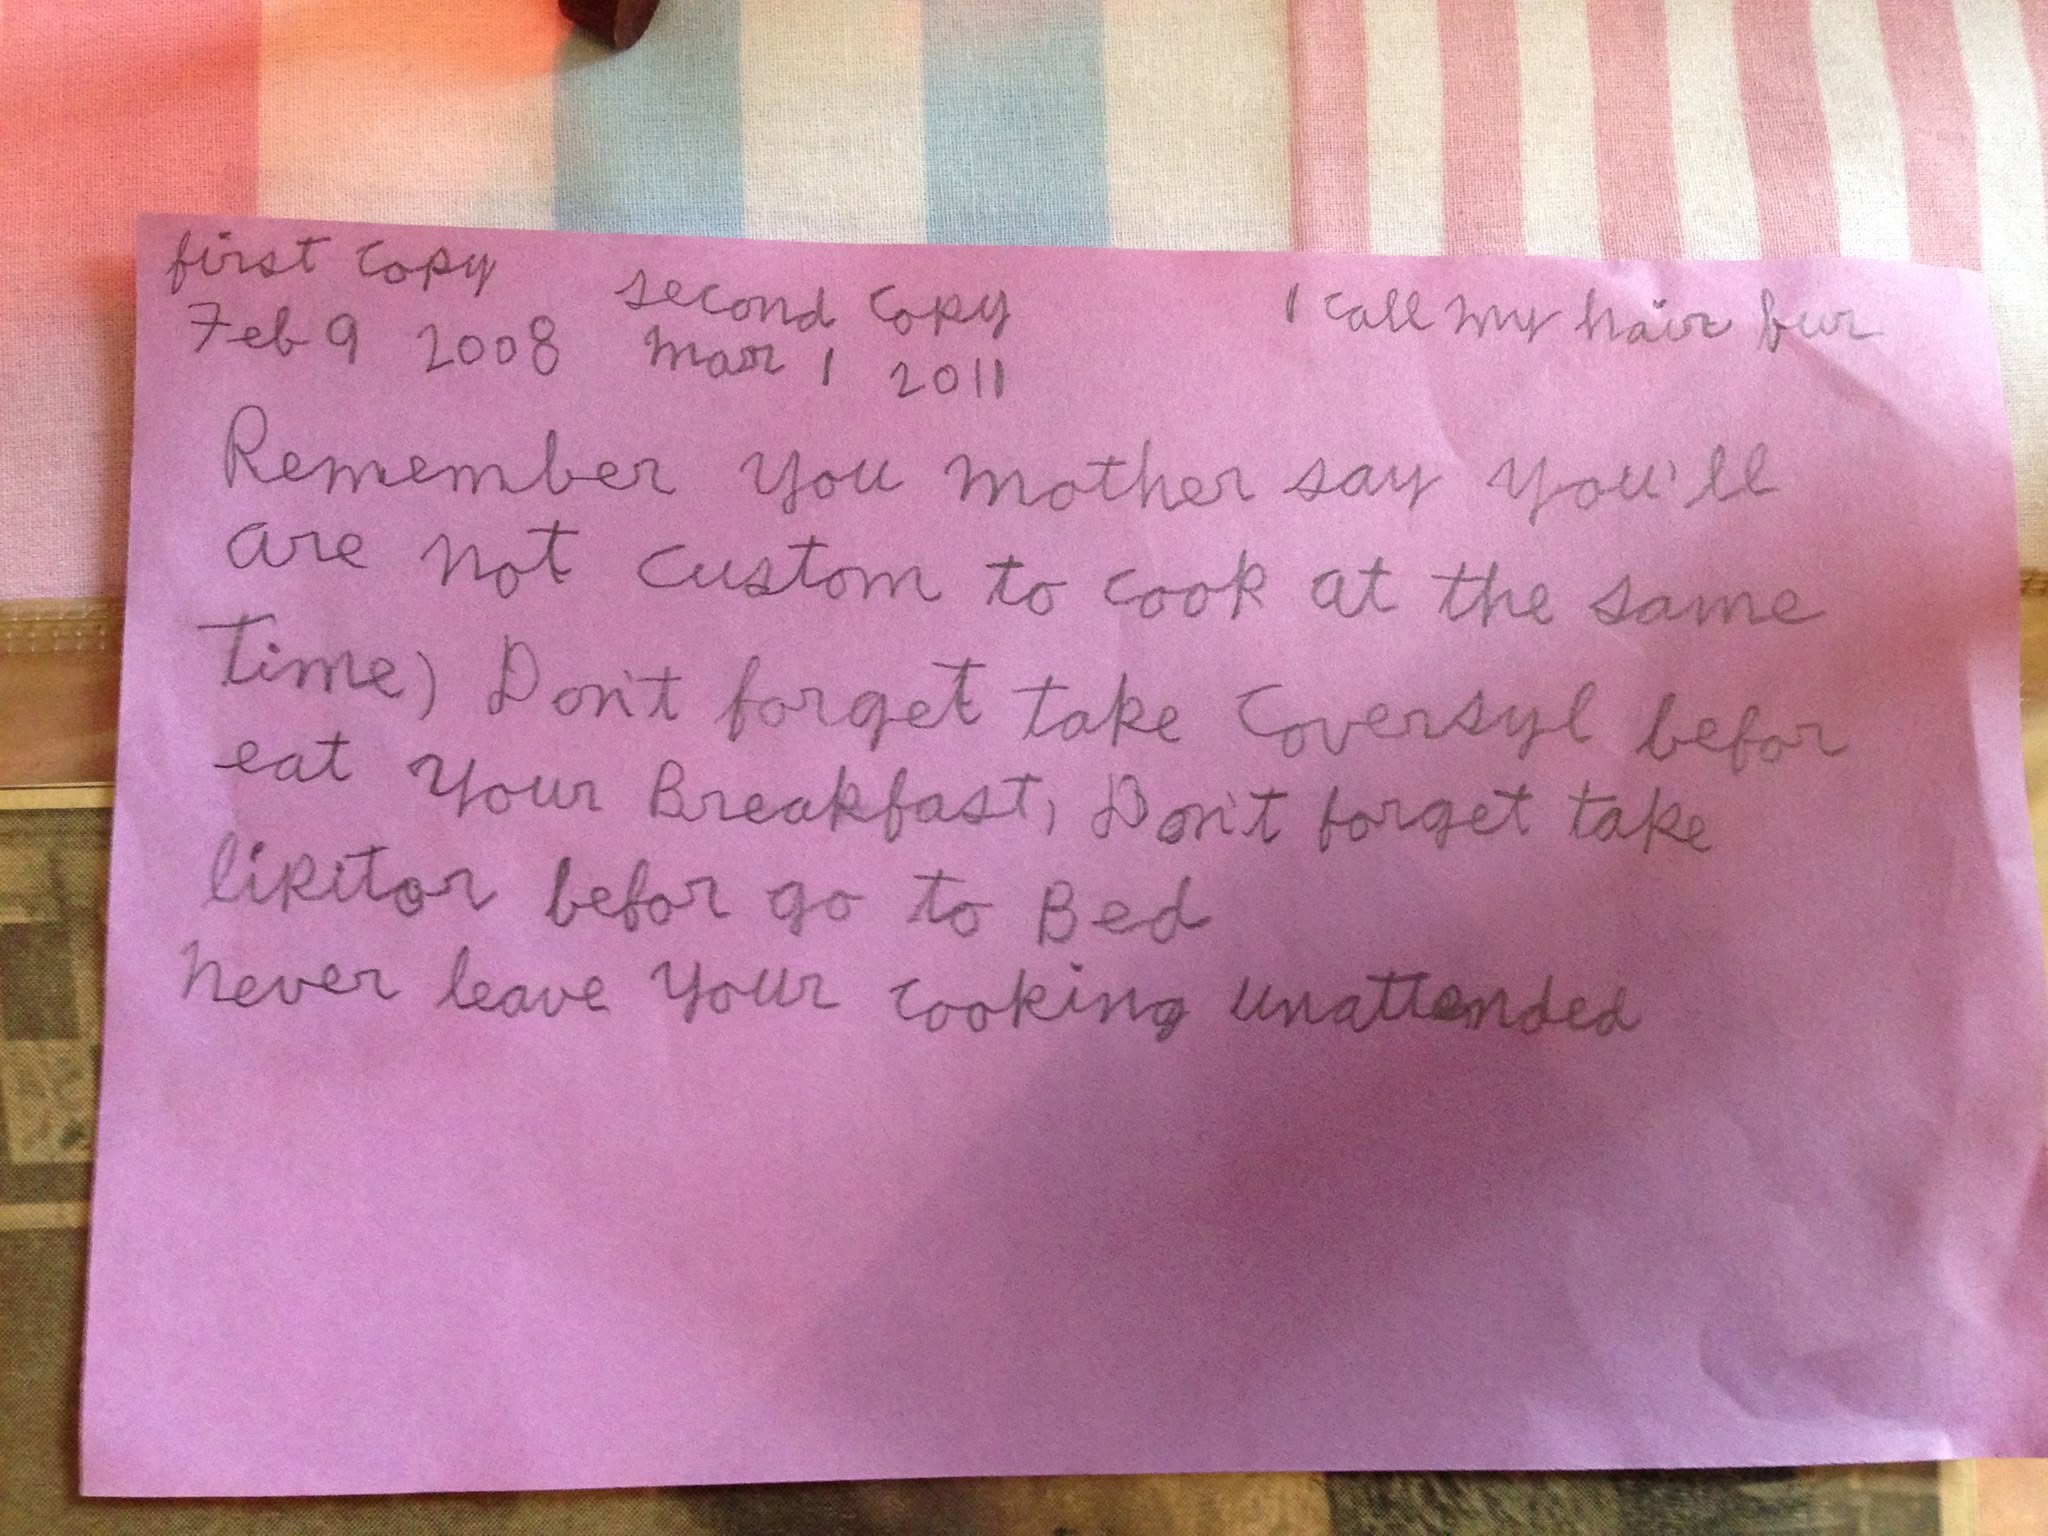 first copy second copy I call my hair fur
Feb 9 2008 Mar 1 2011
Remember you mother say you'll
are not custom to cook at the same
Time) Don't forget take Coversyl befor
eat your Breakfast, Don't forget take
lipitor befor go to Bed
Never leave your cooking unattended